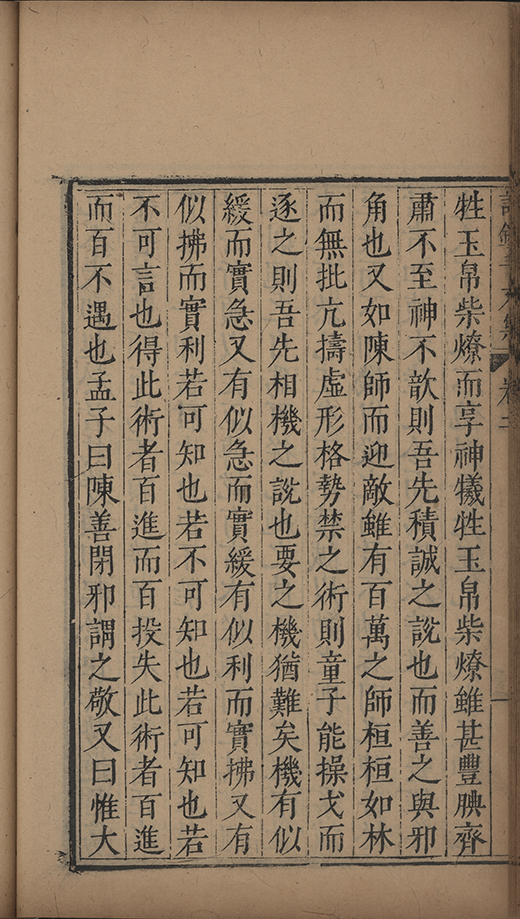 牲玉帛柴燎而享神犧牲玉帛柴燎雖甚豐腆齊
肅不至神不歆則吾先積誠之說也而善之與邪
角也又如陳師而迎敵雖有百萬之師桓桓如林
而無批亢擣虛形格勢禁之術則童子能操戈而
逐之則吾先相機之說也要之機猶難矣機有似
緩而實急又有似急而實緩有似利而實拂又有
似拂而實利若可知也若不可知也若可知也若
不可言也得此術者百進而百投失此術者百進
而百不遇也孟子曰陳善閉邪謂之敬又曰惟大